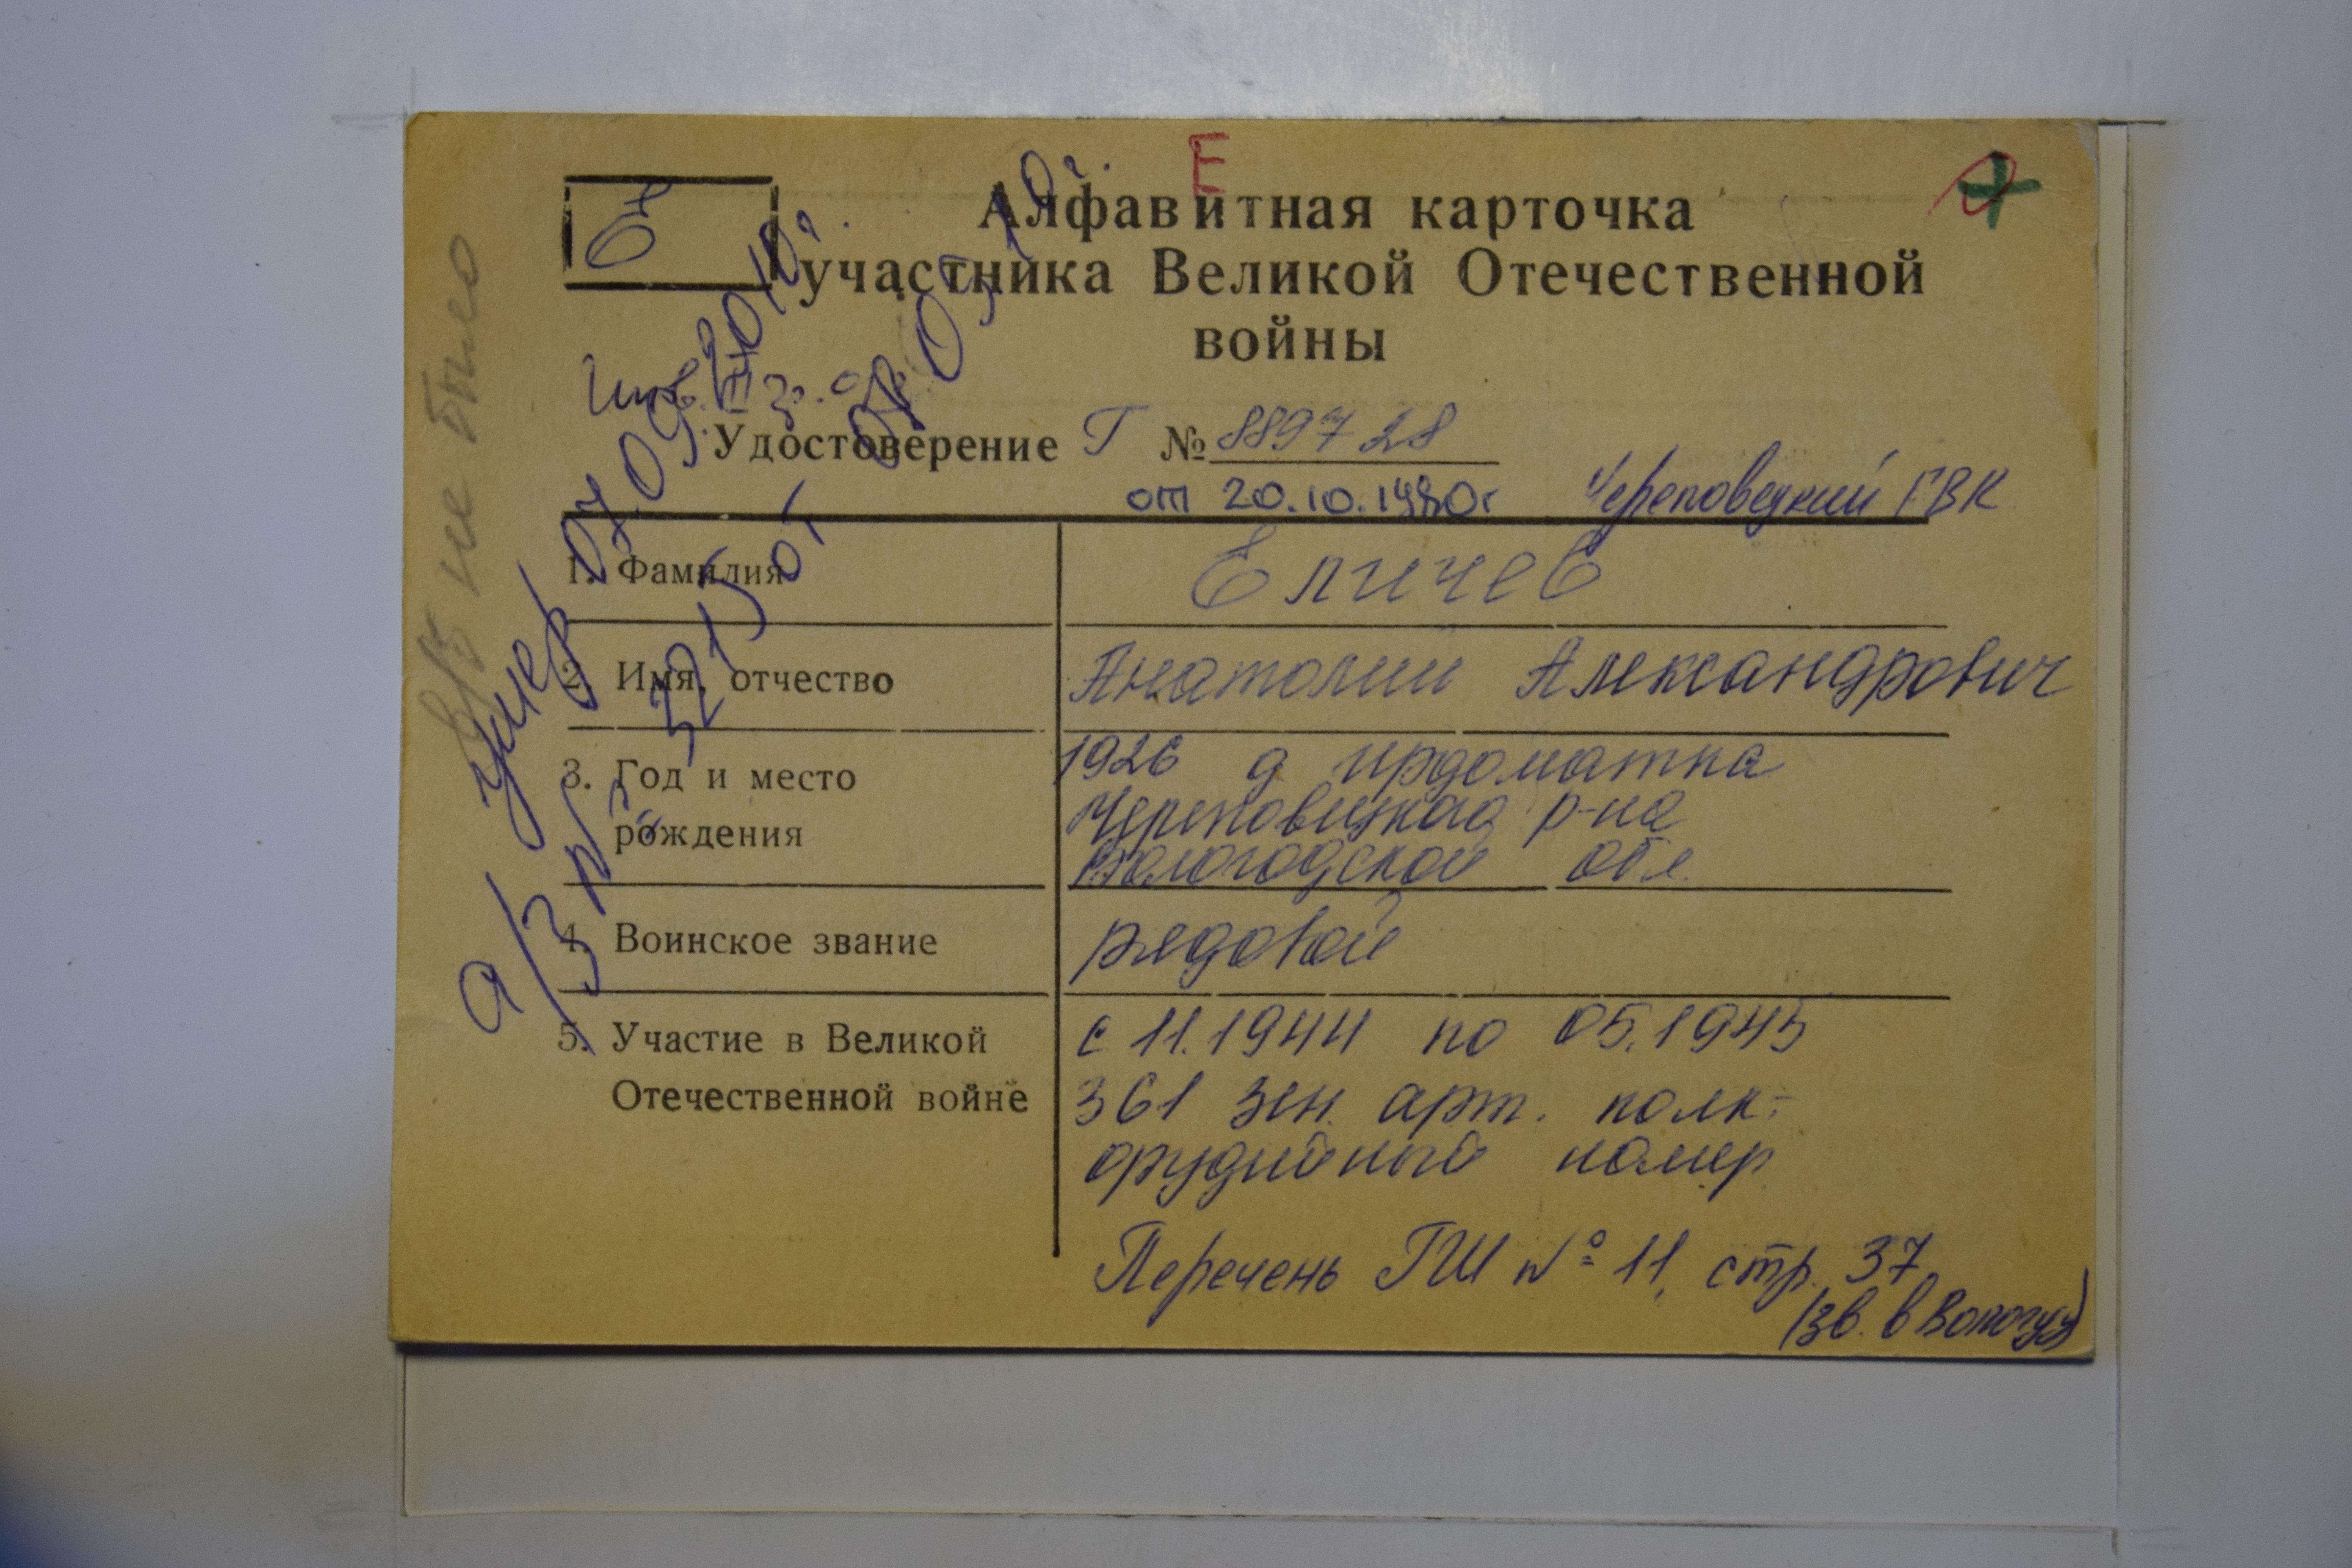 Е
Алфавитная карточка
участника Великой Отечественной
войны
Инв. III гр.
Удостоверение Г № 889728
от 20.10.1980г Череповецкий ГВК
1. Фамилия Еличев
2. Имя, отчество Анатолий Александрович
3. Год и место рождения 1926 д Ирдоматка
Череповецкого р-на
Вологодской обл.
4. Воинское звание рядовой
5. Участие в Великой с 11.1944 по 05.1945
Отечественной войне 361 зен. арт. полк-
орудийный номер
Перечень ГШ № 11, стр. 37
(зв. в Вологду)
в/б не было
умер 07.09.2010г.
а/з № 3215 от 08.09.10г.